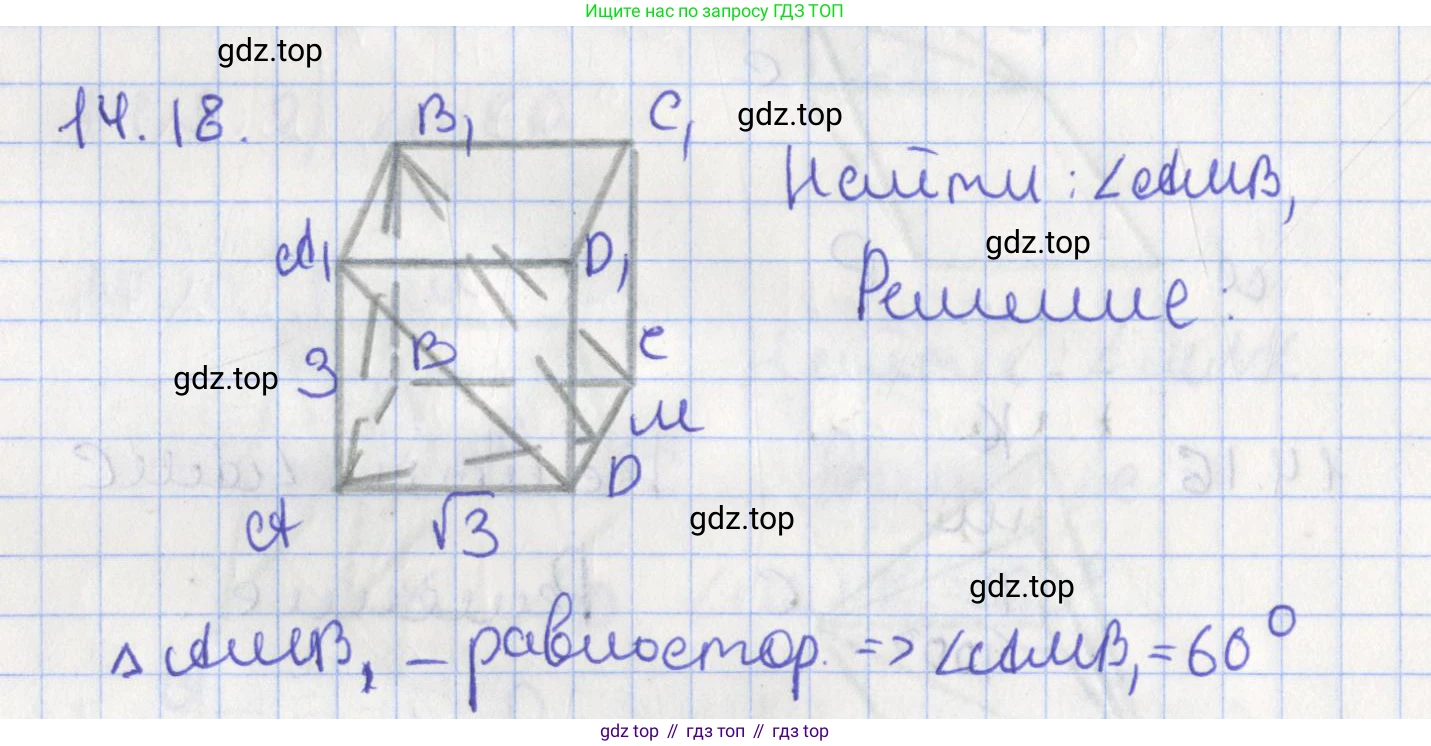 Ищите нас по запросу ГДЗ ТОП
gdz.top
14.18.
B₁
C₁
gdz.top
Найти: ∠AMB₁
A₁
D₁
gdz.top
Решение:
B
C
gdz.top
3
M
D
A
√3
gdz.top
gdz.top
△AMB₁ – равностор. => ∠AMB₁ = 60°
gdz top // гдз топ // gdz top